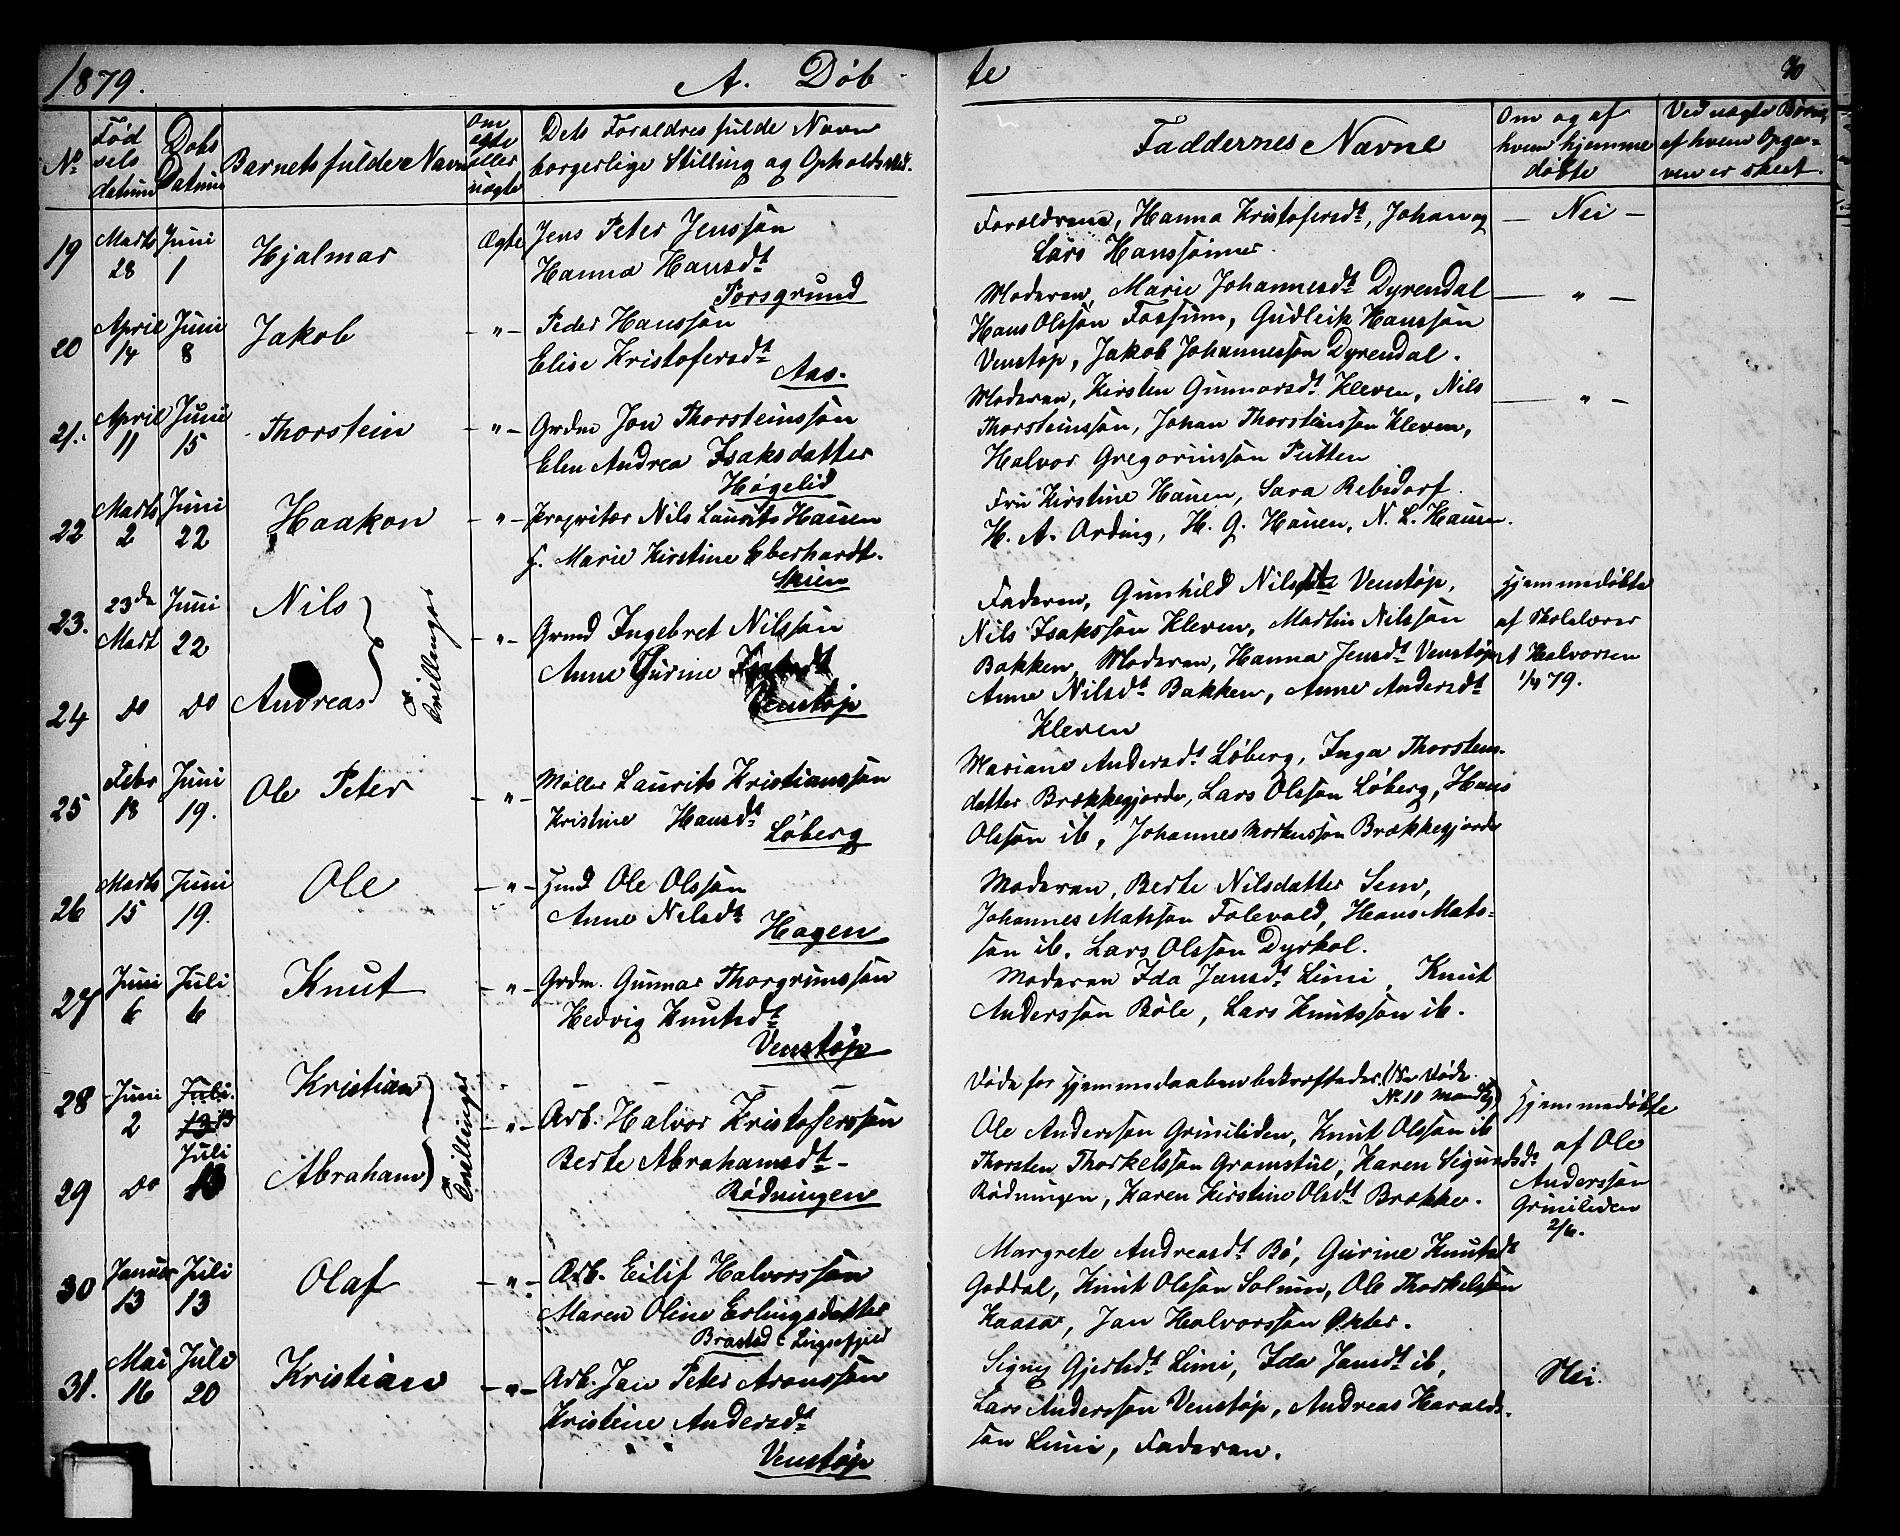 1879. A. Døbte 70
No Fødselsdatum Dobs Datum Barnets fulde Navn Om ægte eller uægte Dets Foraldres fulde Navn borgerlige Stilling og Opholdssted. Faddernes Navne Om og af hvem hjemmedøbte Ved uægte Børn, af hvem Opgaven er skeet.
19 Marts 28 Juni 1 Hjalmar Ægte Jens Peter Jenssøn
Hanna Hansdt
Porsgrund
Foraldrene, Hanna Kristofersdt, Johan og — Nei —
Lars Hanssønner.
20 April 14 Juni 8 Jakob — " — Peder Hanssøn
Elise Kristofersdt
Aas.
Moderen, Marie Johannesdt Dyrendal — " —
Hans Olssøn Fossum, Gudleik Hanssøn
Venstøp, Jakob Johannessøn Dyrendal.
21. April 11 Juni 15 Thorstein — " — Grdm Jon Thorsteinssøn
Elen Andrea Isaksdatter
Høgelid
Moderen, Kirsten Gunnarsdt Kleven, Nils — " —
Thorsteinssøn, Johan Thorsteinssøn Kleven,
Halvor Gregoriussøn Putten
22 Marts 2 Juni 22 Haakon — " — Propritær Nils Laurits Hauen
f. Marie Kirstine Eberhardt.
Skien
Fru Kirstine Hauen, Sara Rebsdorf.
H. A. Arding, H. G. Hauen, N. L. Hauen.
23. 23de Mart Juni 22 Nils } Tvillinger — " — Grmd Ingebret Nilssøn
24 do do Andreas Anne Gurine Isaksdt
Venstøp
Faderen, Gunhild Nilsdt Venstøp, Hjemmedøbte
Nils Isakssøn Kleven, Martin Nilssøn af Skolelærer
Bakken, Moderen, Hanna Jensdt Venstøp, Halvorsen
Anne Nilsdt Bakken, Anne Andersdt 1/4 79.
Kleven
25 Febr 18 Juni 19. Ole Peter — " — Møller Laurits Kristianssøn
Kristine Hansdt
Løberg
Mariane Andersdt Løberg, Inga Thorstens-
datter Brækkegjorde, Lars Olssøn Løberg, Hans
Olssøn ib, Johannes Markussøn Brækkegjorde
26 Marts 15 Juni 19. Ole — " — Hmd Ole Olssøn
Anne Nilsdt
Hagen
Moderen, Berte Nilsdatter Sem,
Johannes Matssøn Folevald, Hans Mats-
søn ib. Lars Olssøn Dyrkol.
27 Juni 6 Juli 6 Knut — " — Grdm. Gunnar Thorgrimssøn
Hedvig Knutsdt
Venstøp
Moderen Ida Jansdt Limi, Knut
Anderssøn Bøle, Lars Knutssøn ib.
28 Juni 2 Juli 13 Kristian } Tvillinger — " — Arb. Halvor Kristoferssøn
29 do Juli 13 Abraham Berte Abrahamsdt
Rødningen
Døde før Hjemmedaaben bekræftedes. (Se Døde No 10 Mandkj)
Ole Anderssøn Griniliden, Knut Olssøn ib Hjemmedøbte
Thorsten Thorkelssøn Gromstul, Karen Sigurdsdt af Ole Anderssøn
Rødningen, Karen Kirstine Olsdt Brække. Griniliden 2/6.
30 Januar 13 Juli 13 Olaf — " — Arb. Eilif Halvorssøn
Maren Oline Erlingsdatter
Brasted Luxefjeld
Margrete Andreasdt Bø, Gurine Knutsdt
Goddal, Knut Olssøn Solum, Ole Thorkelssøn
Kaasa, Jan Halvorssøn Økter.
31. Mai 16 Juli 20 Kristian — " — Arb. Jan Peter Aronssøn
Kristine Andersdt
Venstøp
Signy Gjertsdt Limi, Ida Jansdt ib, Nei.
Lars Anderssøn Venstøp, Andreas Harald-
søn Limi, Faderen.